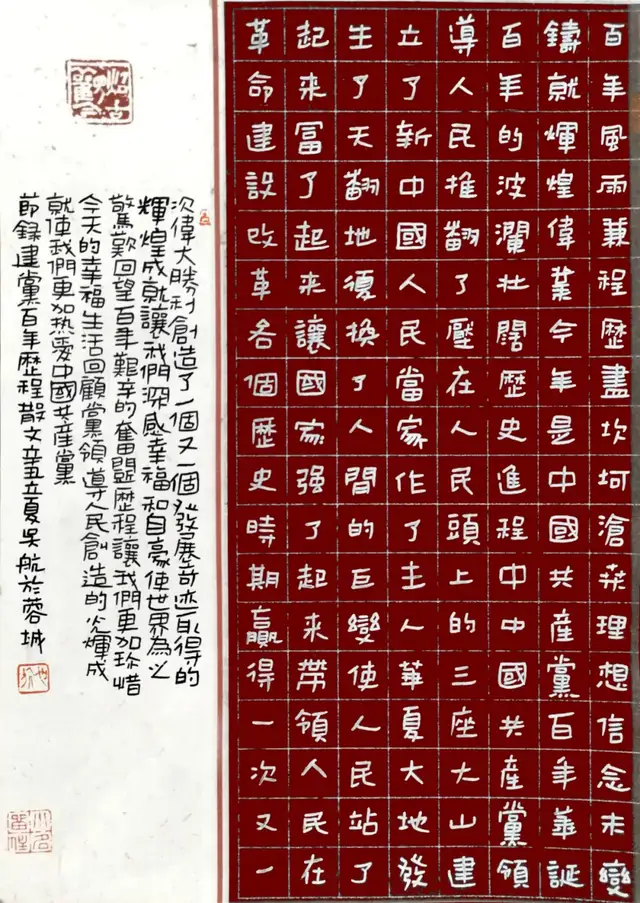 百年風雨兼程歷盡坎坷滄桑理想信念未變
鑄就輝煌偉業今年是中國共產黨百年華誕
百年的波瀾壯闊歷史進程中中國共產黨領
導人民推翻了壓在人民頭上的三座大山建
立了新中國人民當家作了主人華夏大地發
生了天翻地復換了人間的巨變使人民站了
起來富了起來讓國家强了起來帶領人民在
革命建設改革各個歷史時期贏得一次又一
次偉大勝利創造了一個又一個發展奇迹取得的
輝煌成就讓我們深感幸福和自豪使世界為之
驚歎回望百年艱辛的奮鬥歷程讓我們更加珍惜
今天的幸福生活回顧黨領導人民創造的光輝成
就使我們更加热愛中國共產黨
節錄建黨百年歷程散文辛丑立夏吳航於蓉城